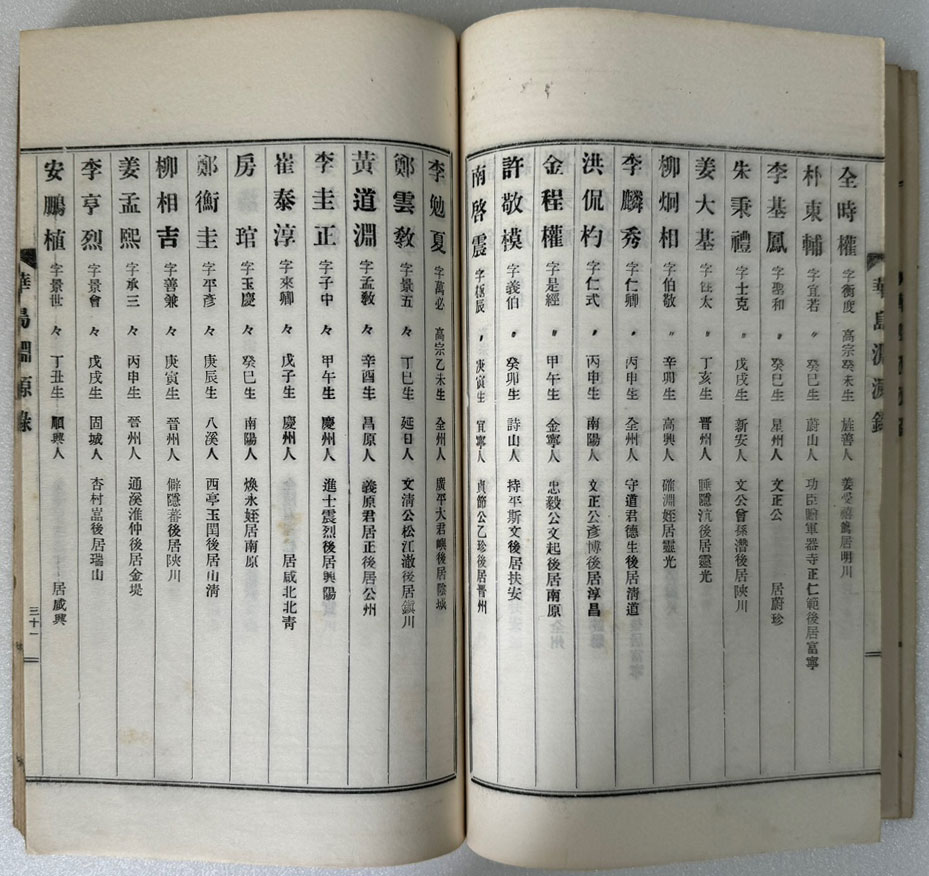 全時權 字衡度 高宗癸未生 旌善人 居明川
朴東輔 字宜若 〃 癸巳生 蔚山人 功臣贈軍器寺正仁範後居富寧
李基鳳 字聖和 〃 癸巳生 星州人 文正公 居蔚珍
朱秉禮 字士克 〃 戊戌生 新安人 文公曾孫潛後居陜川
姜大基 太 〃 丁亥生 晋州人 睡隱沆後居靈光
柳炯相 字伯敬 〃 辛卯生 高興人 確淵姪居靈光
李麟秀 字仁卿 〃 丙申生 全州人 守道君德生後居清道
洪侃杓 字仁式 〃 丙申生 南陽人 文正公彥博後居淳昌
金程權 字是經 〃 甲午生 金寧人 忠毅公文起後居南原
許敬模 字義伯 〃 癸卯生 詩山人 持平斯文後居扶安
南啓震 辰 〃 庚寅生 宜寧人 貞節公乙珍後居晋州
華島淵源錄
李勉夏 字萬必 高宗乙未生 全州人 廣平大君璵後居陰城
鄭雲教 字景五 々 丁巳生 延日人 文淸公松江澈後居鎭川
黃道淵 字孟教 々 辛酉生 昌原人 義原君居正後居公州
李圭正 字子中 々 甲午生 慶州人 進士震烈後居興陽
崔泰淳 字來卿 々 戊子生 慶州人 居咸北北靑
房琯 字玉慶 々 癸巳生 南陽人 煥永姪居南原
鄭衡圭 字平彥 々 庚辰生 八溪人 西亭玉閏後居山淸
柳相吉 字善兼 々 庚寅生 晉州人 僻隱蕃後居陜川
姜孟熙 字承三 々 丙申生 晉州人 通溪淮仲後居金堤
李亨烈 字景會 々 戊戌生 固城人 杏村嵓後居瑞山
安鵬植 字景世 々 丁丑生 順興人 居咸興
華島淵源錄
三十一